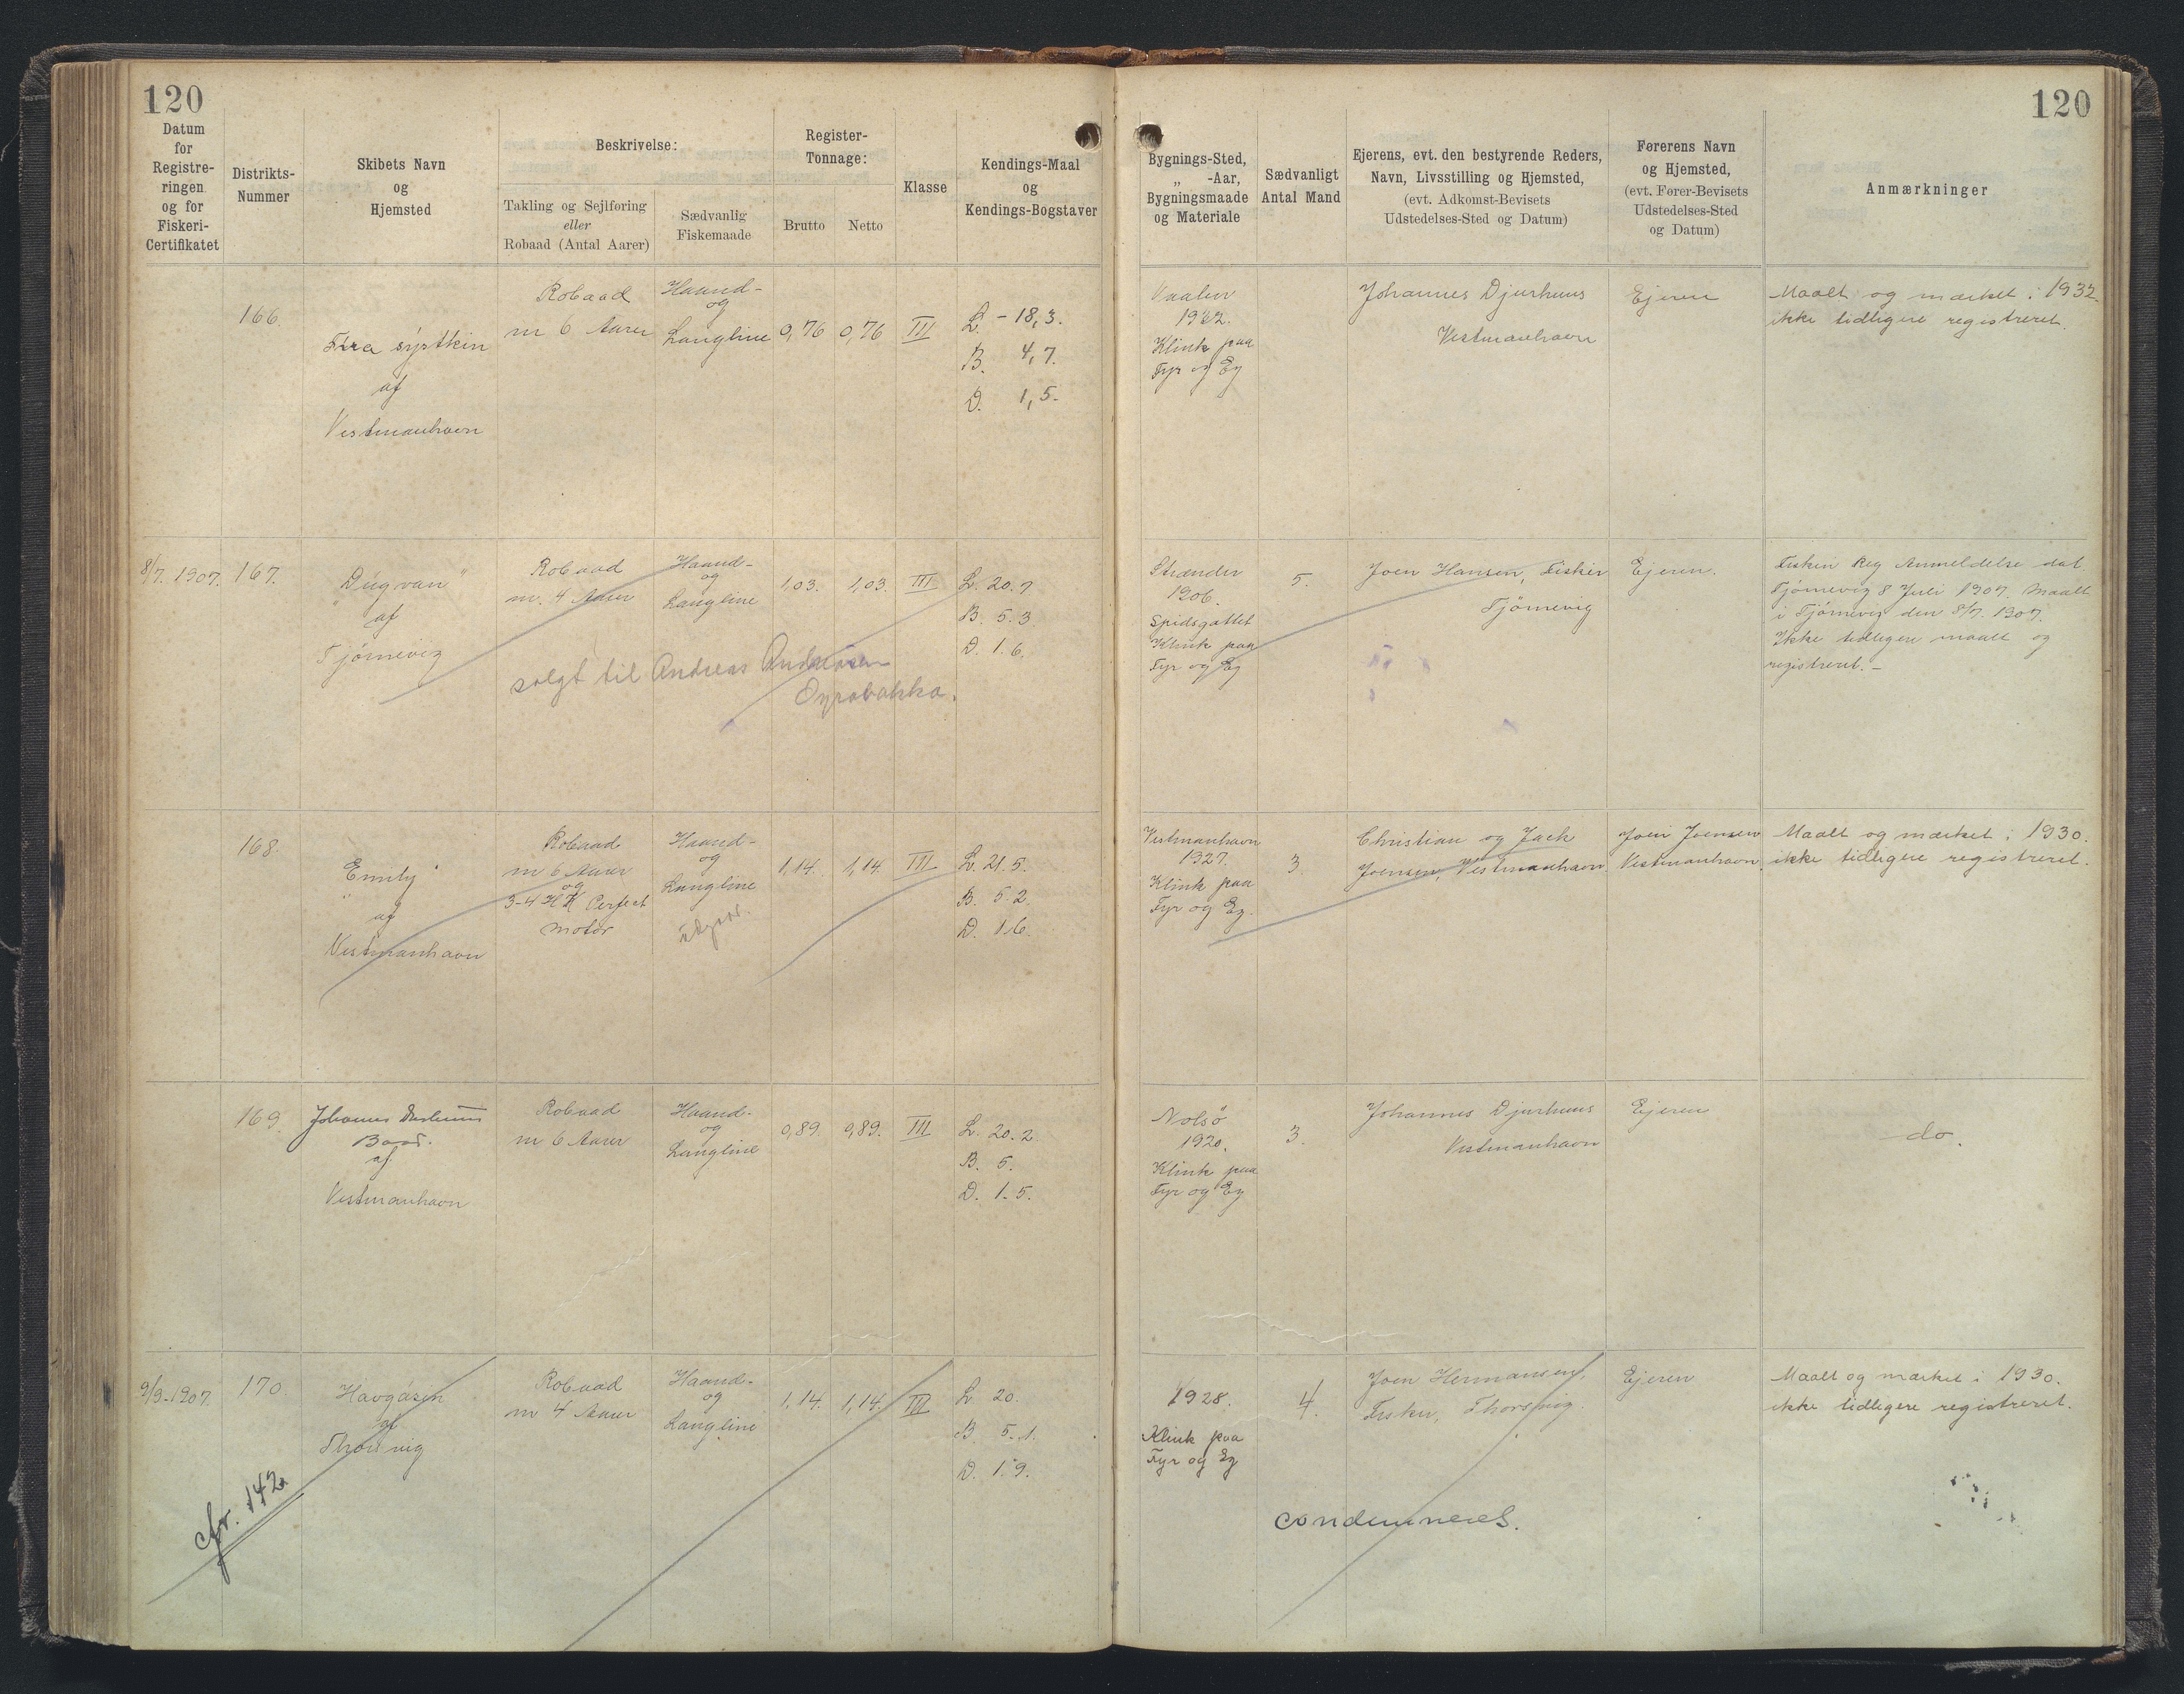 120
120
Datum
for
Registre-
ringen
og for
Fiskeri-
Certifikatet
Distrikts-
Nummer
Skibets Navn
og
Hjemsted
Beskrivelse:
Takling og Sejlføring
eller
Robaad (Antal Aarer)
Sædvanlig
Fiskemaade
Register-
Tonnage:
Brutto
Netto
Klasse
Kendings-Maal
og
Kendings-Bogstaver
Bygnings-Sted,
„ -Aar,
Bygningsmaade
og Materiale
Sædvanligt
Antal Mand
Ejerens, evt. den bestyrende Reders,
Navn, Livsstilling og Hjemsted,
(evt. Adkomst-Bevisets
Udstedelses-Sted og Datum)
Førerens Navn
og Hjemsted,
(evt. Fører-Bevisets
Udstedelses-Sted
og Datum)
Anmærkninger
166.
sýstkin
af
Vestmanhavn
Robaad
m 6 Aarer
Haand-
og
Langline
0,76
0,76
III
L. - 18,3.
B. 4,7.
D. 1,5.
Klink paa
Fyr og Eg
Johannes Djurhuus
Vestmanhavn
Ejeren
Maalt og mærket i 1932.
ikke tidligere registreret.
8/7. 1907.
167.
"Dúgvan"
af
Tjørnevig
Robaad
m. 4 Aarer
Haand-
og
Langline
1,03.
1,03.
III
L. 20.7
B. 5.3
D. 1.6.
solgt til Andreas Andreasen
Oyrabakka.
Strænder
1906.
Spidsgattet
Klink paa
Fyr og Eg
5.
Joen Hansen, Fisker
Tjörnevig
Ejeren.
Fiskeri Reg Anmeldelse dat.
Tjørnevig 8 Juli 1907. Maalt
i Tjørnevig den 8/7. 1907.
Ikke tidligere maalt og
registreret. –
168.
"Emily"
af
Vestmanhavn
Robaad
m 6 Aarer
og
3-4 HK Perfect
Motor
Haand-
og
Langline
udgaar.
1,14.
1,14.
III
L. 21.5.
B. 5.2.
D. 1.6.
Vestmanhavn
1927.
Klink paa
Fyr og Eg.
3.
Christian og Jack
Joensen, Vestmanhavn
Joen Joensen
Vestmanhavn.
Maalt og mærket i 1930.
ikke tidligere registreret.
169.
Johannes Djurhuus
Baad.
af
Vestmanhavn
Robaad
m 6 Aarer
Haand-
og
Langline
0,89.
0,89.
III
L. 20.2.
B. 5.
D. 1.5.
Nolsö
1920.
Klink paa
Fyr og Eg
3.
Johannes Djurhuus
Vestmanhavn
Ejeren
do.
9/9-1907.
170.
Havgásin
af
Thorsvig
cfr. 142.
Robaad
m 4 Aarer
Haand-
og
Langline
1,14.
1,14.
III
L 20.
B. 5.1.
D. 1.9.
1928.
Klink paa
Fyr og Eg
4.
Joen Hermansen,
Fisker, Thorsvig.
Ejeren
Maalt og mærket i 1930.
ikke tidligere registreret.
condemneret.